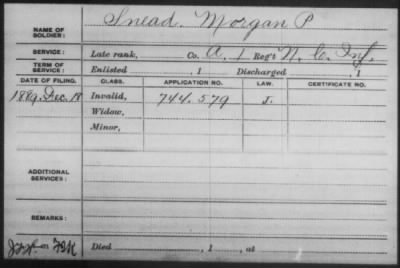 NAME OF SOLDIER: Snead, Morgan P
SERVICE: Late rank, Co. A, 1 Reg't N. C. Inf.
TERM OF SERVICE: Enlisted , 1 Discharged , 1
DATE OF FILING. CLASS. APPLICATION NO. LAW. CERTIFICATE NO.
1889. Dec. 18 Invalid, 744.579 J.
Widow,
Minor,
ADDITIONAL SERVICES:
REMARKS:
Died , 1 , at